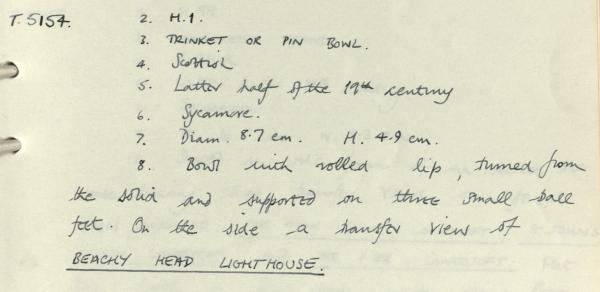 T.5154. 2. H.1.
3. TRINKET OR PIN BOWL.
4. Scottish
5. Latter half of the 19th century
6. Sycamore.
7. Diam. 8.7 cm. H. 4.9 cm.
8. Bowl with rolled lip, turned from
the solid and supported on three small ball
feet. On the side a transfer view of
BEACHY HEAD LIGHTHOUSE.